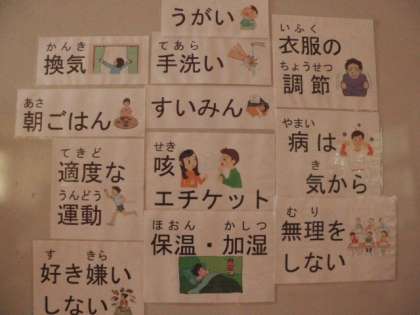 うがい
かんき
換気
てあら
手洗い
いふく
衣服の
ちょうせつ
調節
あさ
朝ごはん
すいみん
てきど
適度な
うんどう
運動
せき
咳
エチケット
やまい
病は
き
気から
す きら
好き嫌い
しない
ほおん かしつ
保温・加湿
むり
無理を
しない